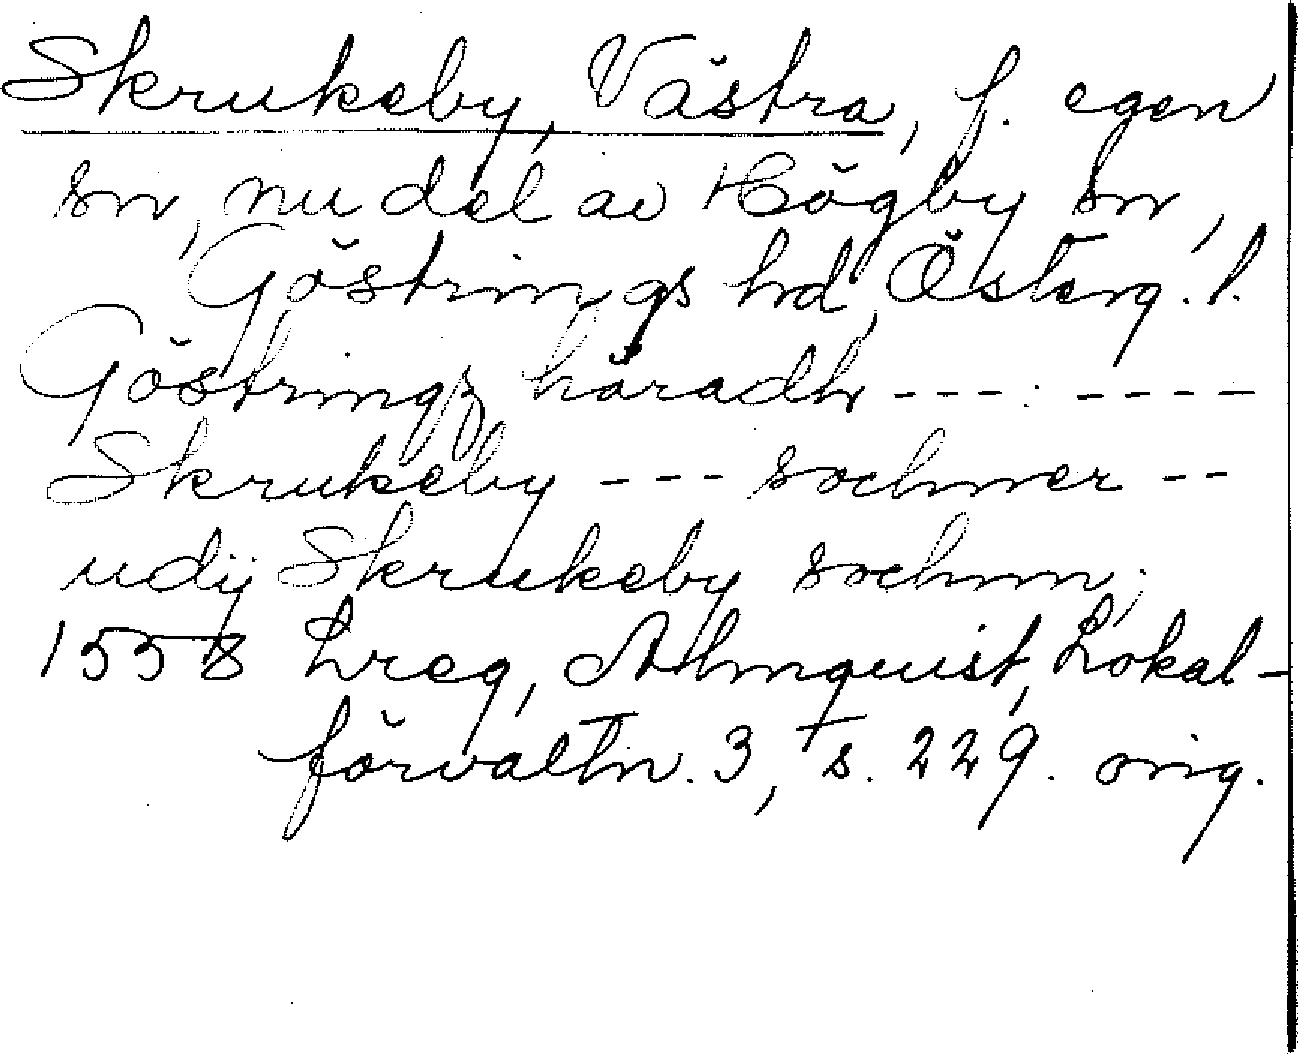 Skrukeby, Västra, f. egen
sn, nu del av Högby sn,
Göstrings hd, Österg. l.
Göstringz häradh ---: ----
Skrukeby --- sochner --
udij Skrukeby sochnn;
1558 Lreg, Almquist, Lokal-
förvaltn. 3, s. 229. orig.